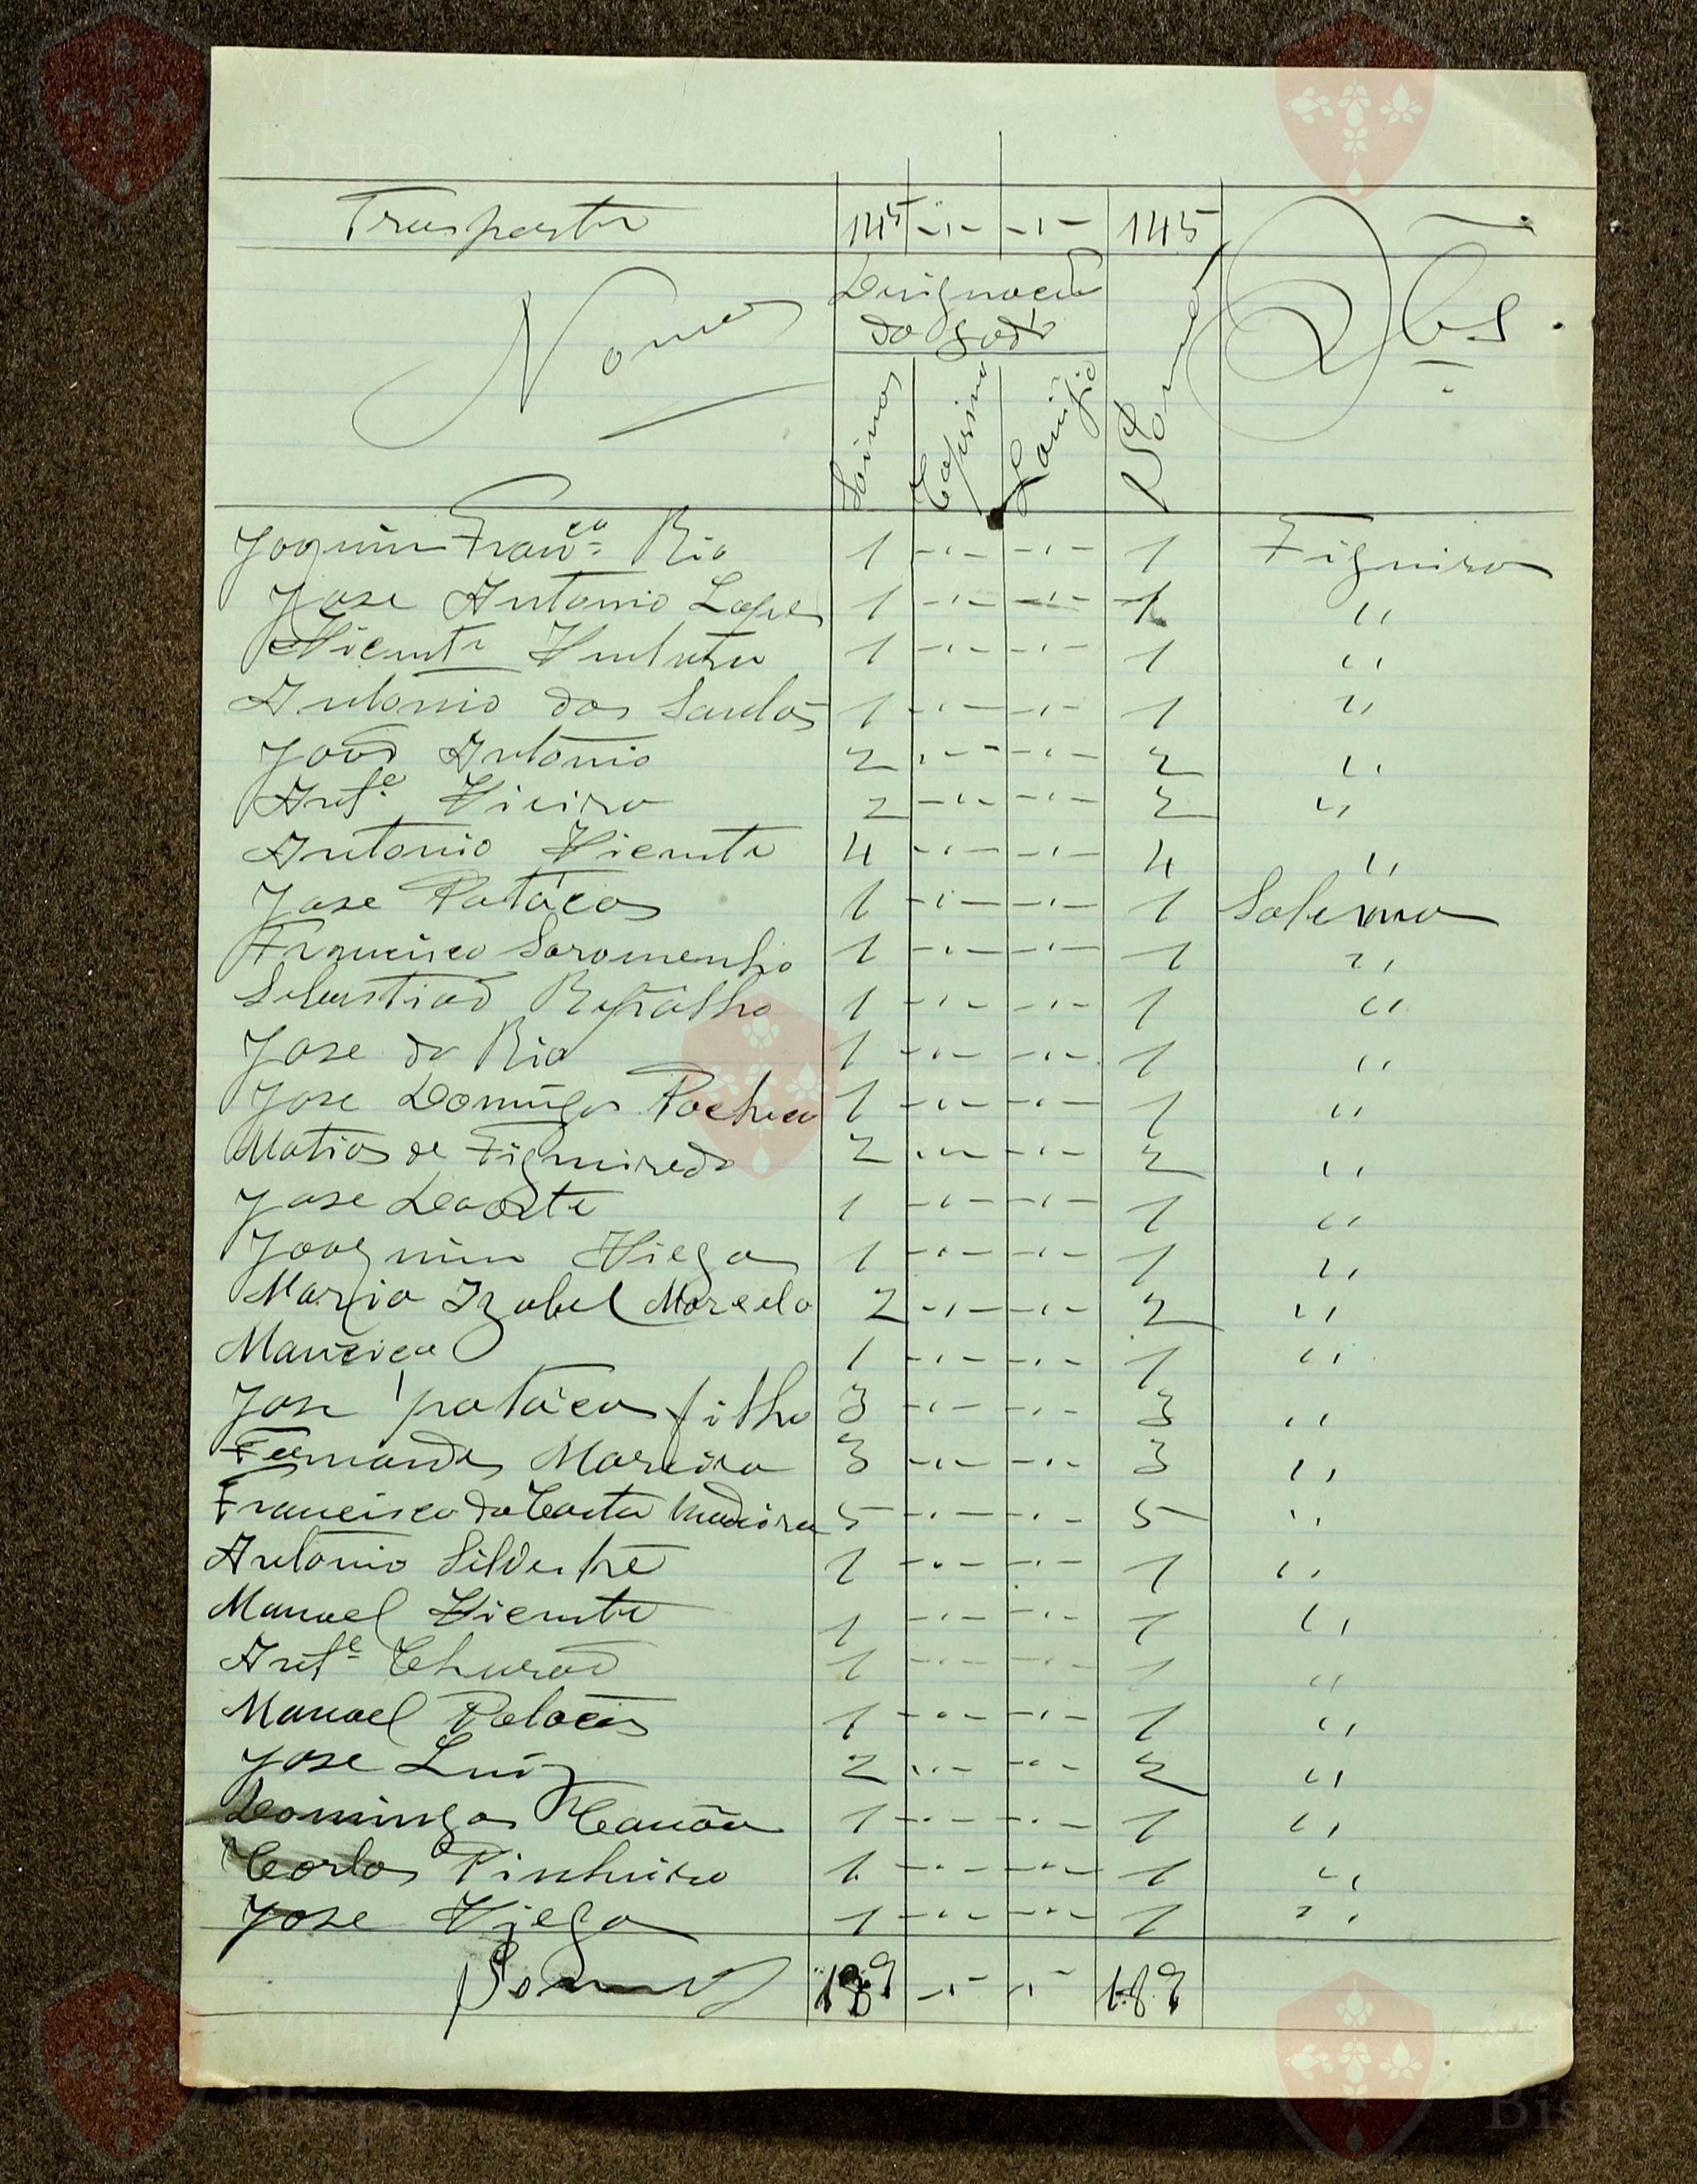 Trasporte 145 -"- -"- 145
Nomes Designação Somas Obs
do gado
Suinos Caprino Lanigio
Joaquim Franco Rio 1 -"- -"- 1 Figueira
Jose Antonio Lopes 1 -"- -"- 1 "
Vicente Ventura 1 -"- -"- 1 "
Antonio dos Santos 1 -"- -"- 1 "
João Antonio 2 -"- -"- 2 "
Antº Vieira 2 -"- -"- 2 "
Antonio Vicente 4 -"- -"- 4 "
Jose Patacas 1 -"- -"- 1 Salema
Francisco Saromenho 1 -"- -"- 1 "
Sebastião 1 -"- -"- 1 "
Jose do Rio 1 -"- -"- 1 "
Jose Domingos Pacheco 1 -"- -"- 1 "
Matias de Figueiredo 2 -"- -"- 2 "
Jose Duarte 1 -"- -"- 1 "
Joaquim Viegas 1 -"- -"- 1 "
Maria Izabel Marcela 2 -"- -"- 2 "
Mauricia 1 -"- -"- 1 "
Jose patacas filho 3 -"- -"- 3 "
Fernandes Moreira 3 -"- -"- 3 "
Francisco da Costa Madeira 5 -"- -"- 5 "
Antonio Silvestre 1 -"- -"- 1 "
Manoel Vicente 1 -"- -"- 1 "
Antº 1 -"- -"- 1 "
Manoel Patacas 1 -"- -"- 1 "
Jose Luiz 2 -"- -"- 2 "
Domingos 1 -"- -"- 1 "
Carlos Pinheiro 1 -"- -"- 1 "
Jose Viega 1 -"- -"- 1 "
Soma 189 -"- -"- 189
Vila do
Bispo